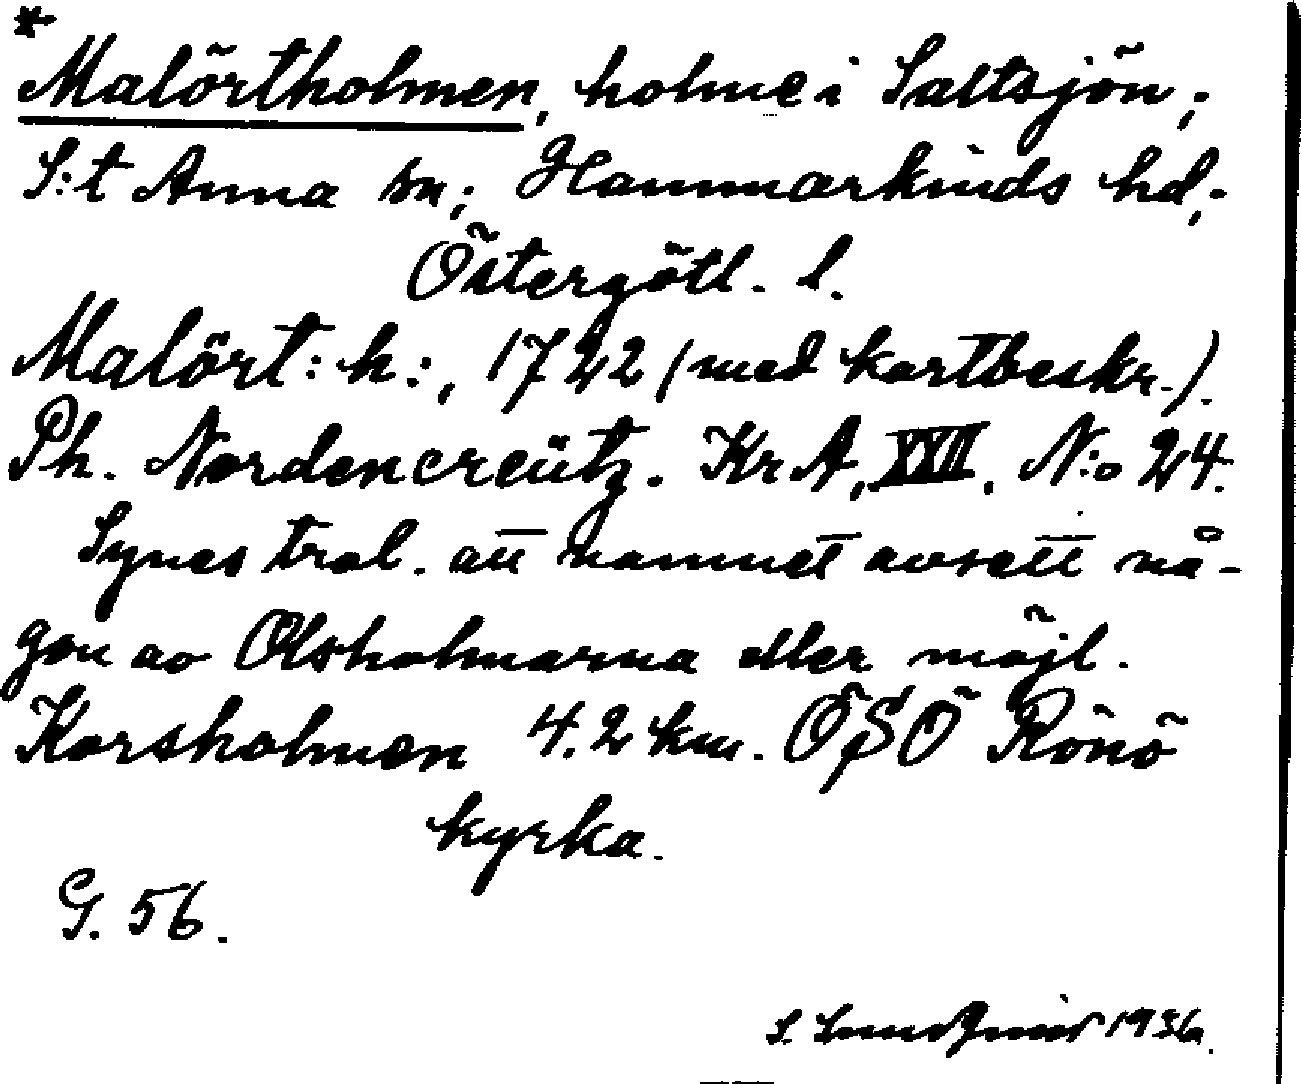 *Malörtholmen, holme i Saltsjön;
S:t Anna sn; Hammarkinds hd;
Östergötl. l.
Malört: h:, 1722 (med kartbeskr.).
Ph. Nordencreütz. Kr A, XXII. N:o 24.
Synes trol. att namnet avsett nå-
gon av Olsholmarna eller möjl.
Korsholmen 4.2 km. ÖSÖ Rönö
kyrka.
G. 56.
S. 1936.